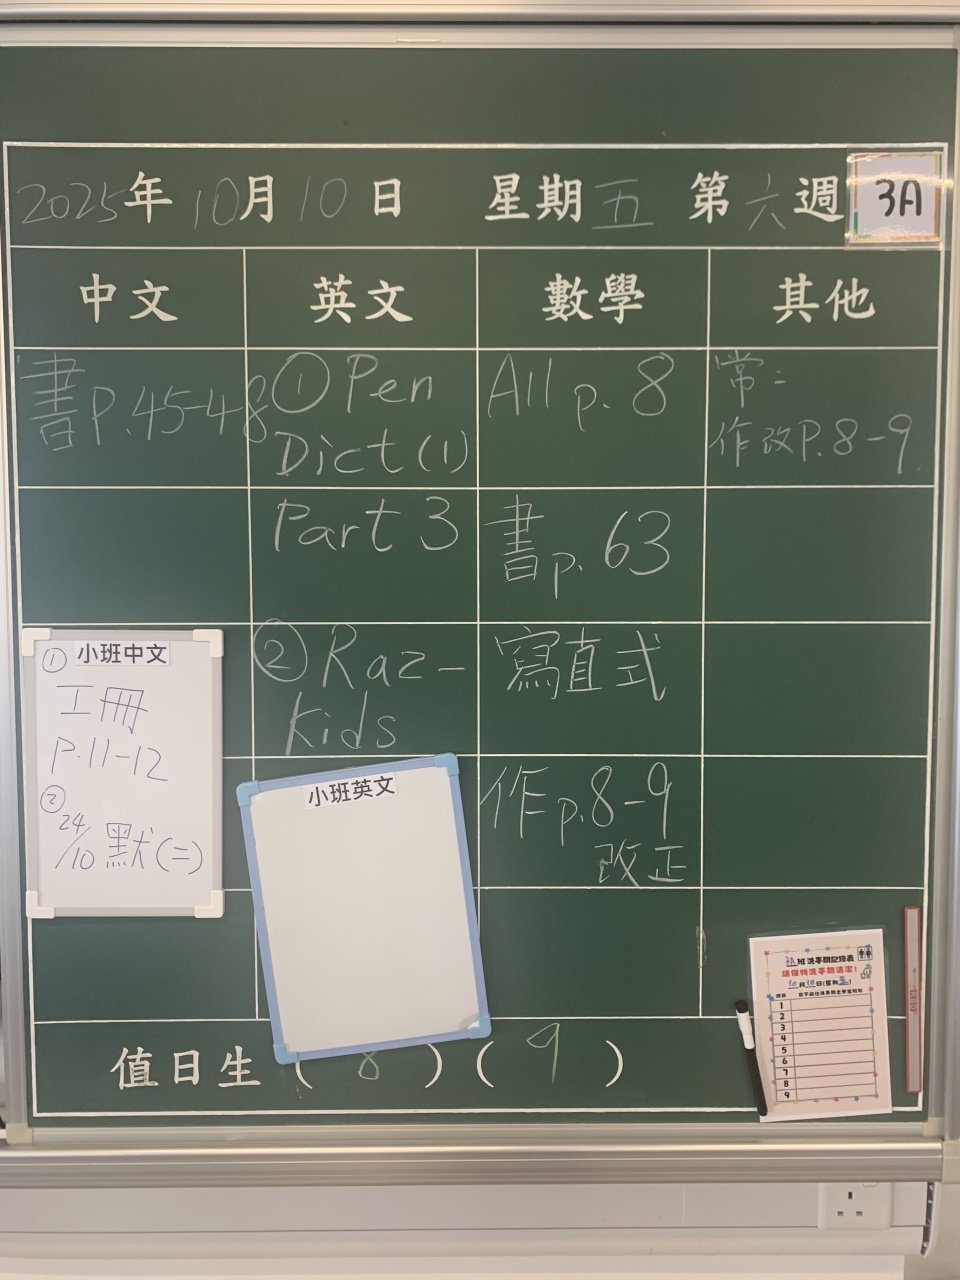 2025年 10月 10日 星期五 第六週 3A
中文 英文 數學 其他
書P.45-48
① Pen
Dict(1)
Part 3
② Raz-
Kids
All p. 8
書p. 63
寫直式
作p.8-9
改正
常:
作改P.8-9.
小班中文
①
工冊
P.11-12
②
24/10 默(二)
小班英文
3A班洗手間記錄表
請保持洗手間清潔!
10月10日(星期五)
1
2
3
4
5
6
7
8
9
值日生 ( 8 ) ( 9 )